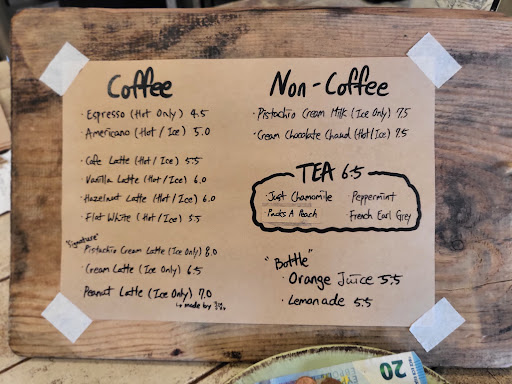 Coffee
· Espresso (Hot Only) 4.5
· Americano (Hot / Ice) 5.0
· Cafe Latte (Hot / Ice) 5.5
· Vanilla Latte (Hot / Ice) 6.0
· Hazelnut Latte (Hot / Ice) 6.0
· Flat White (Hot / Ice) 5.5
"Signature"
· Pistachio Cream Latte (Ice Only) 8.0
· Cream Latte (Ice Only) 6.5
Peanut Latte (Ice Only) 7.0
↳ made by
Non-Coffee
· Pistachio Cream Milk (Ice Only) 7.5
· Cream Chocolate Chaud (Hot/Ice) 7.5
TEA 6.5
· Just Chamomile Peppermint
· Packs A Peach French Earl Grey
"Bottle"
· Orange Juice 5.5
· Lemonade 5.5
20